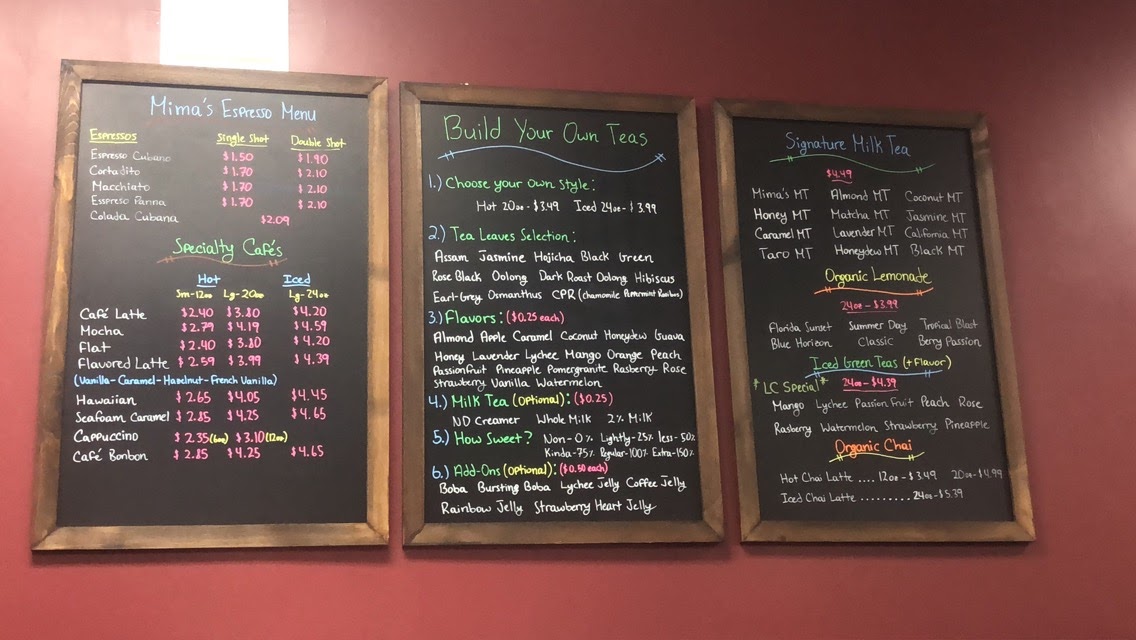 Mima's Espresso Menu
Espressos Single Shot Double Shot
Espresso Cubano $1.50 $1.90
Cortadito $1.70 $2.10
Macchiato $1.70 $2.10
Esspreso Panna $1.70 $2.10
Colada Cubana $2.09
Specialty Cafés
Hot Iced
Sm-12oz Lg-20oz Lg-24oz
Café Latte $2.40 $3.80 $4.20
Mocha $2.79 $4.19 $4.59
Flat $2.40 $3.80 $4.20
Flavored Latte $2.59 $3.99 $4.39
(Vanilla-Caramel-Hazelnut-French Vanilla)
Hawaiian $2.65 $4.05 $4.45
Seafoam Caramel $2.85 $4.25 $4.65
Cappuccino $2.35(6oz) $3.10(12oz)
Café Bonbon $2.85 $4.25 $4.65
Build Your Own Teas
1.) Choose your Own Style:
Hot 20oz-$3.49 Iced 24oz-$3.99
2.) Tea Leaves Selection:
Assam Jasmine Hojicha Black Green
Rose Black Oolong Dark Roast Oolong Hibiscus
Earl-Grey Osmanthus CPR (Chamomile Peppermint Rooibos)
3.) Flavors: ($0.25 each)
Almond Apple Caramel Coconut Honeydew Guava
Honey Lavender Lychee Mango Orange Peach
Passionfruit Pineapple Pomergranite Rasberry Rose
Strawberry Vanilla Watermelon
4.) Milk Tea (Optional): ($0.25)
ND Creamer Whole Milk 2% Milk
5.) How Sweet? Non-0% Lightly-25% less-50%
Kinda-75% Regular-100% Extra-150%
6.) Add-Ons (Optional): ($0.50 each)
Boba Bursting Boba Lychee Jelly Coffee Jelly
Rainbow Jelly Strawberry Heart Jelly
Signature Milk Tea
$4.49
Mima's MT Almond MT Coconut MT
Honey MT Matcha MT Jasmine MT
Caramel MT Lavender MT California MT
Taro MT Honeydew MT Black MT
Organic Lemonade
24oz-$3.99
Florida Sunset Summer Day Tropical Blast
Blue Horizon Classic Berry Passion
Iced Green Teas (+Flavor)
*LC Special* 24oz-$4.39
Mango Lychee Passion Fruit Peach Rose
Rasberry Watermelon Strawberry Pineapple
Organic Chai
Hot Chai Latte .... 12oz-$3.49 20oz-$4.99
Iced Chai Latte ......... 24oz-$5.39